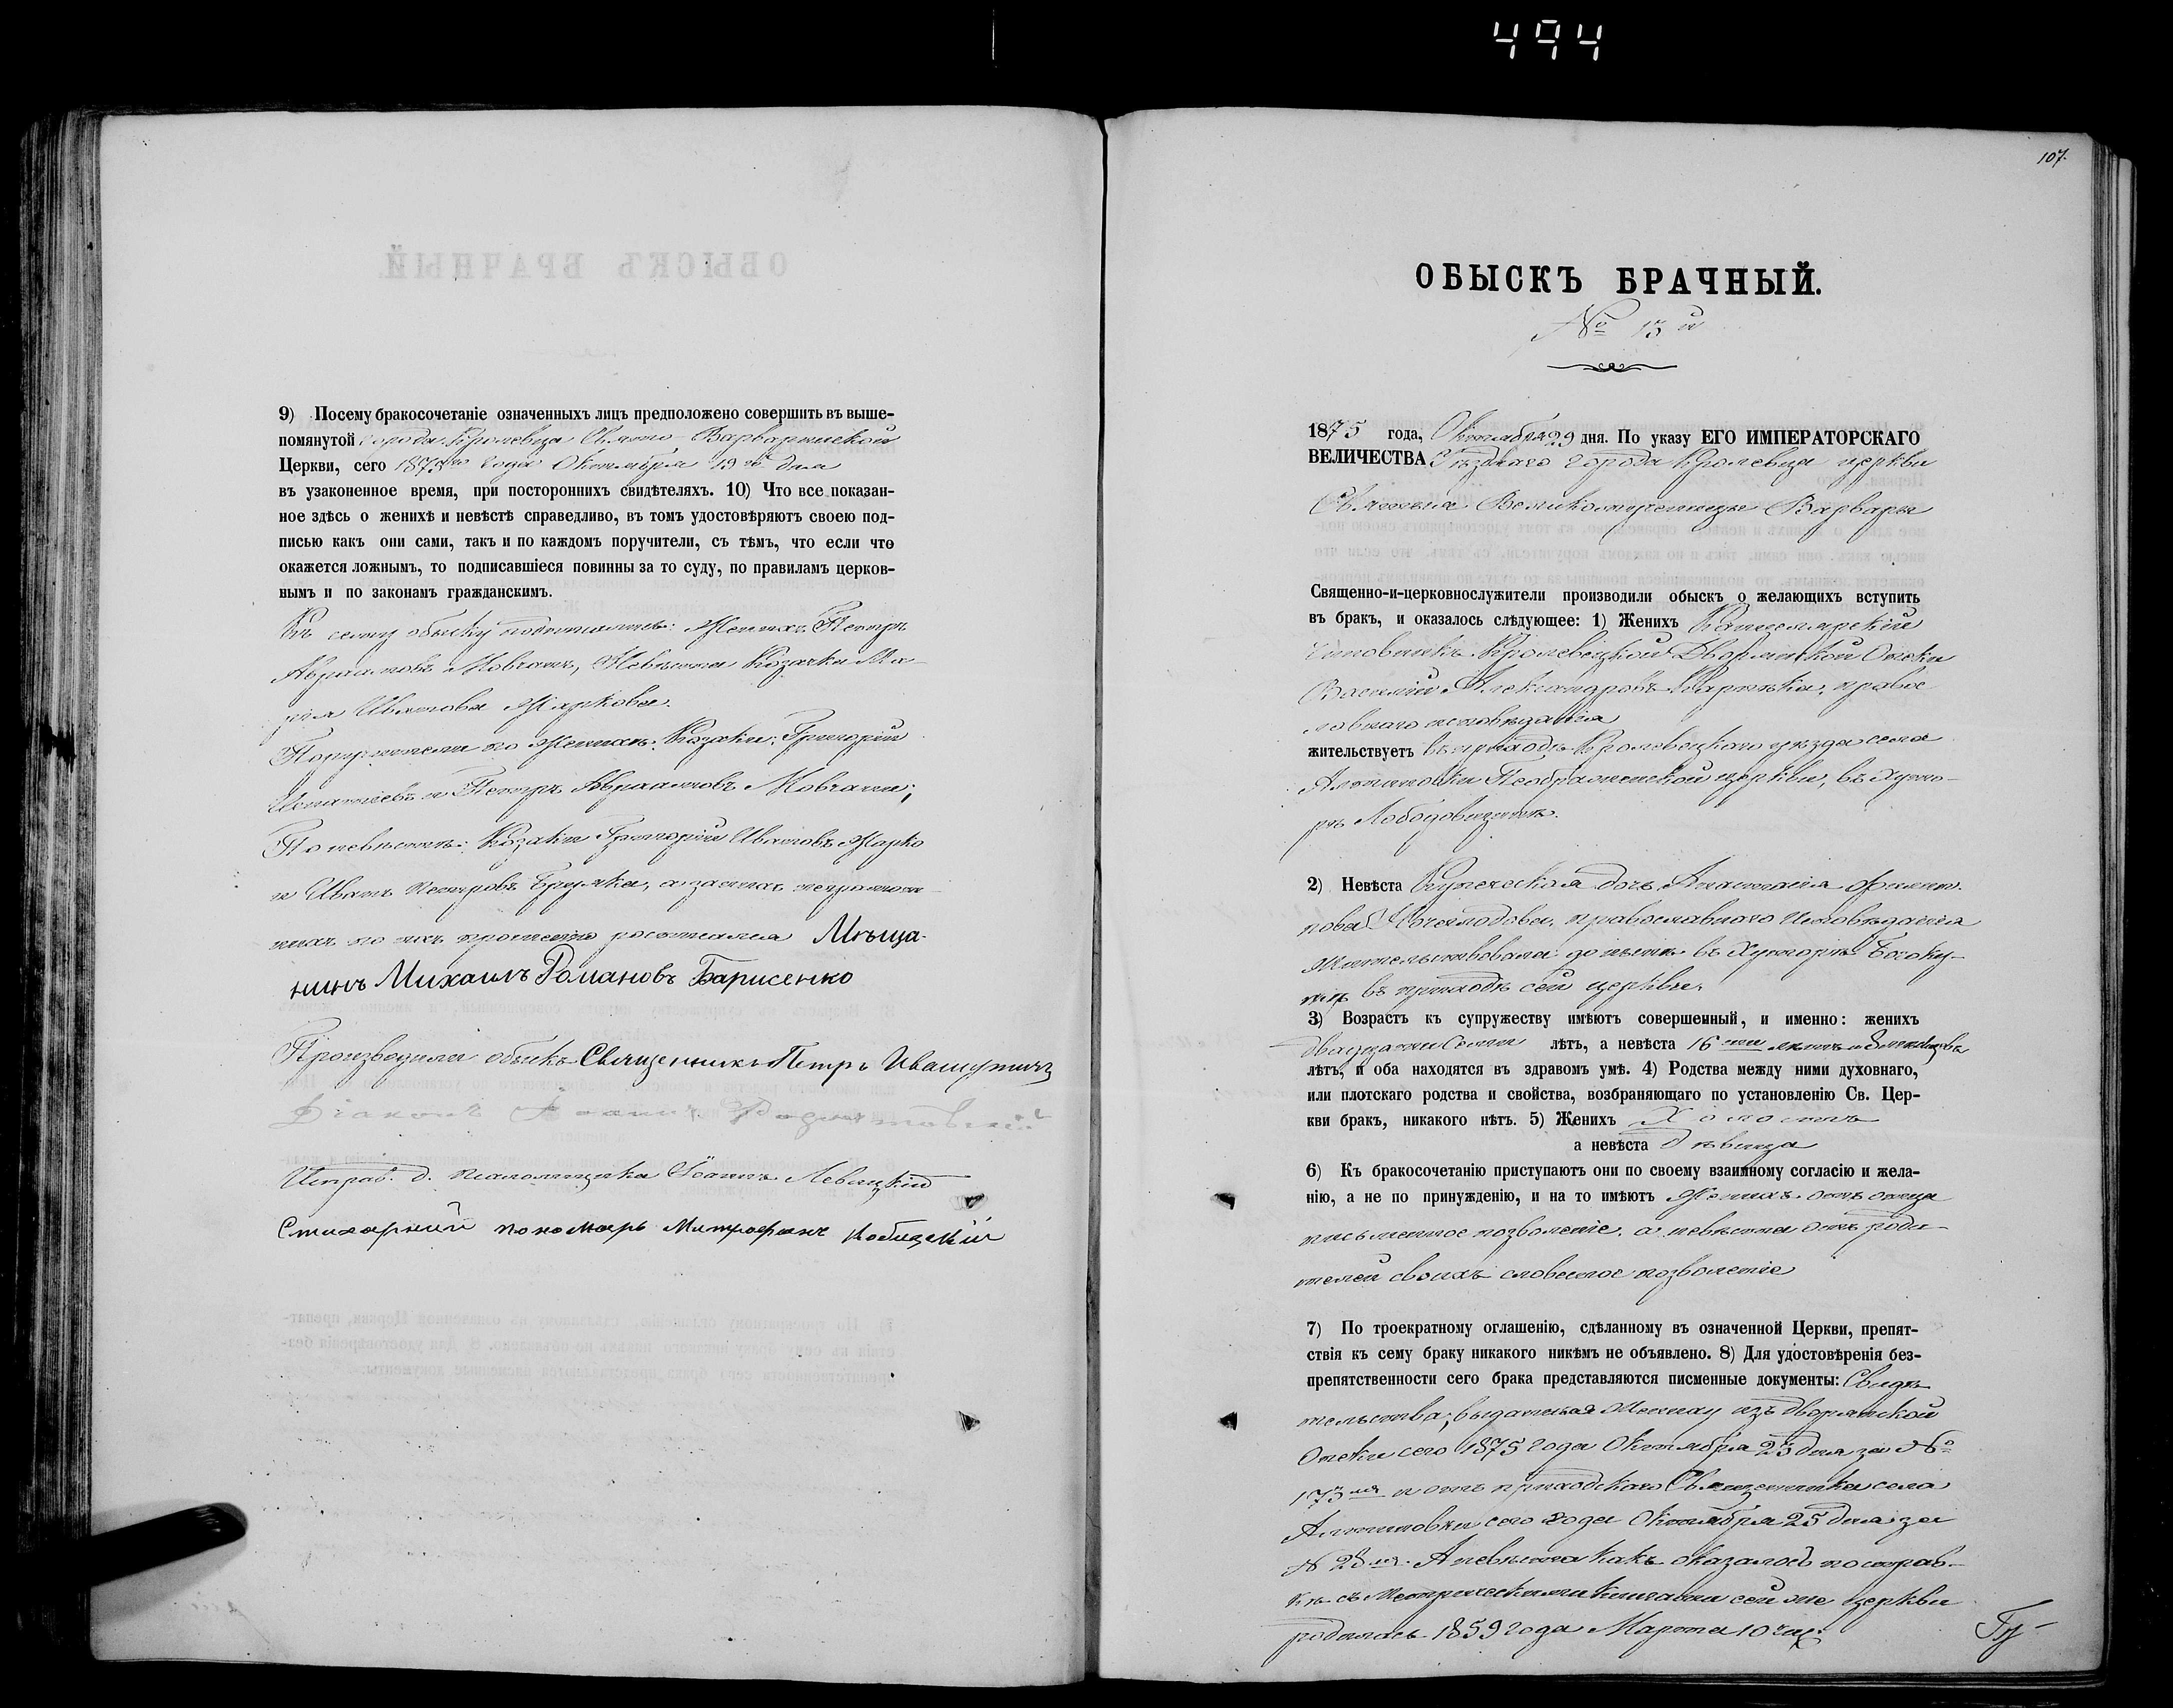 494
9) Посему бракосочетаніе означенныхъ лицъ предположено совершить въ выше-
помянутой города Кролевца Свято-Варваринской
Церкви, сего 1875го года Октября 19го дня
въ узаконенное время, при постороннихъ свидѣтеляхъ. 10) Что все показан-
ное здѣсь о женихѣ и невѣстѣ справедливо, въ томъ удостовѣряютъ своею под-
писью какъ они сами, такъ и по каждомъ поручители, съ тѣмъ, что если что
окажется ложнымъ, то подписавшіеся повинны за то суду, по правиламъ церков-
нымъ и по законамъ гражданскимъ.
Къ сему обыску подписались: Женихъ Петръ
Авраамовъ Мовчанъ, Невѣста Козачка Ма-
рія Иванова Жаркова.
Поручители по женихѣ: Козаки: Григорій
Игнатіевъ и Петръ Авраамовъ Мовчани;
По невѣстѣ: Козаки Григорій Ивановъ Жарко
и Иванъ Петровъ а за нихъ неграмот-
ныхъ по ихъ прошенію росписался Мѣща-
нинъ Михаилъ Романовъ Барисенко
Производили обыскъ Священникъ Петръ Ивашутичъ
Діаконъ Іоаннъ
Исправ. д. псаломщика Іоаннъ Левицкій
Стихарный пономарь Митрофанъ Кобицкій
107.
ОБЫСКЪ БРАЧНЫЙ.
№ 13й
1875 года, Октября 29 дня. По указу ЕГО ИМПЕРАТОРСКАГО
ВЕЛИЧЕСТВА Уѣзднаго города Кролевца церкви
Святыя Великомученицы Варвары
Священно-и-церковнослужители производили обыскъ о желающихъ вступить
въ бракъ, и оказалось слѣдующее: 1) Женихъ Канцелярскій
чиновникъ Кролевецкой Дворянской Опеки
Василій Александровъ православ-
наго исповѣданія
жительствуетъ въ приходѣ Кролевецкаго уѣзда села
Алтыновки Преображенской церкви, въ Хуто-
рѣ
2) Невѣста Купеческая дочь Анастасія Филип-
пова православнаго исповѣданія
жительствовала до нынѣ въ Хуторѣ
въ приходѣ сей церкви.
3) Возрастъ къ супружеству имѣютъ совершенный, и именно: женихъ
двадцати семи лѣтъ, а невѣста 16ти лѣтъ и 8 мѣсяцовъ
лѣтъ, и оба находятся въ здравомъ умѣ. 4) Родства между ними духовнаго,
или плотскаго родства и свойства, возбраняющаго по установленію Св. Цер-
кви бракъ, никакого нѣтъ. 5) Женихъ Холостъ
а невѣста Дѣвица
6) Къ бракосочетанію приступаютъ они по своему взаимному согласію и жела-
нію, а не по принужденію, и на то имѣютъ Женихъ отъ отца
письменное позволеніе, а невѣста отъ роди-
телей своихъ словесное позволеніе
7) По троекратному оглашенію, сдѣланному въ означенной Церкви, препят-
ствія къ сему браку никакого никѣмъ не объявлено. 8) Для удостовѣренія без-
препятственности сего брака представляются писменные документы: Свидѣ-
тельства, выданныя Жениху изъ Дворянской
Опеки сего 1875 года Октября 23 дня за №
173мъ и отъ приходскаго Священника села
Алтыновки сего года Октября 25 дня за
№ 28мъ. А невѣста какъ оказалось по справ-
кѣ съ Метрическими книгами сей же церкви
родилась 1859 года Марта 10 чис: